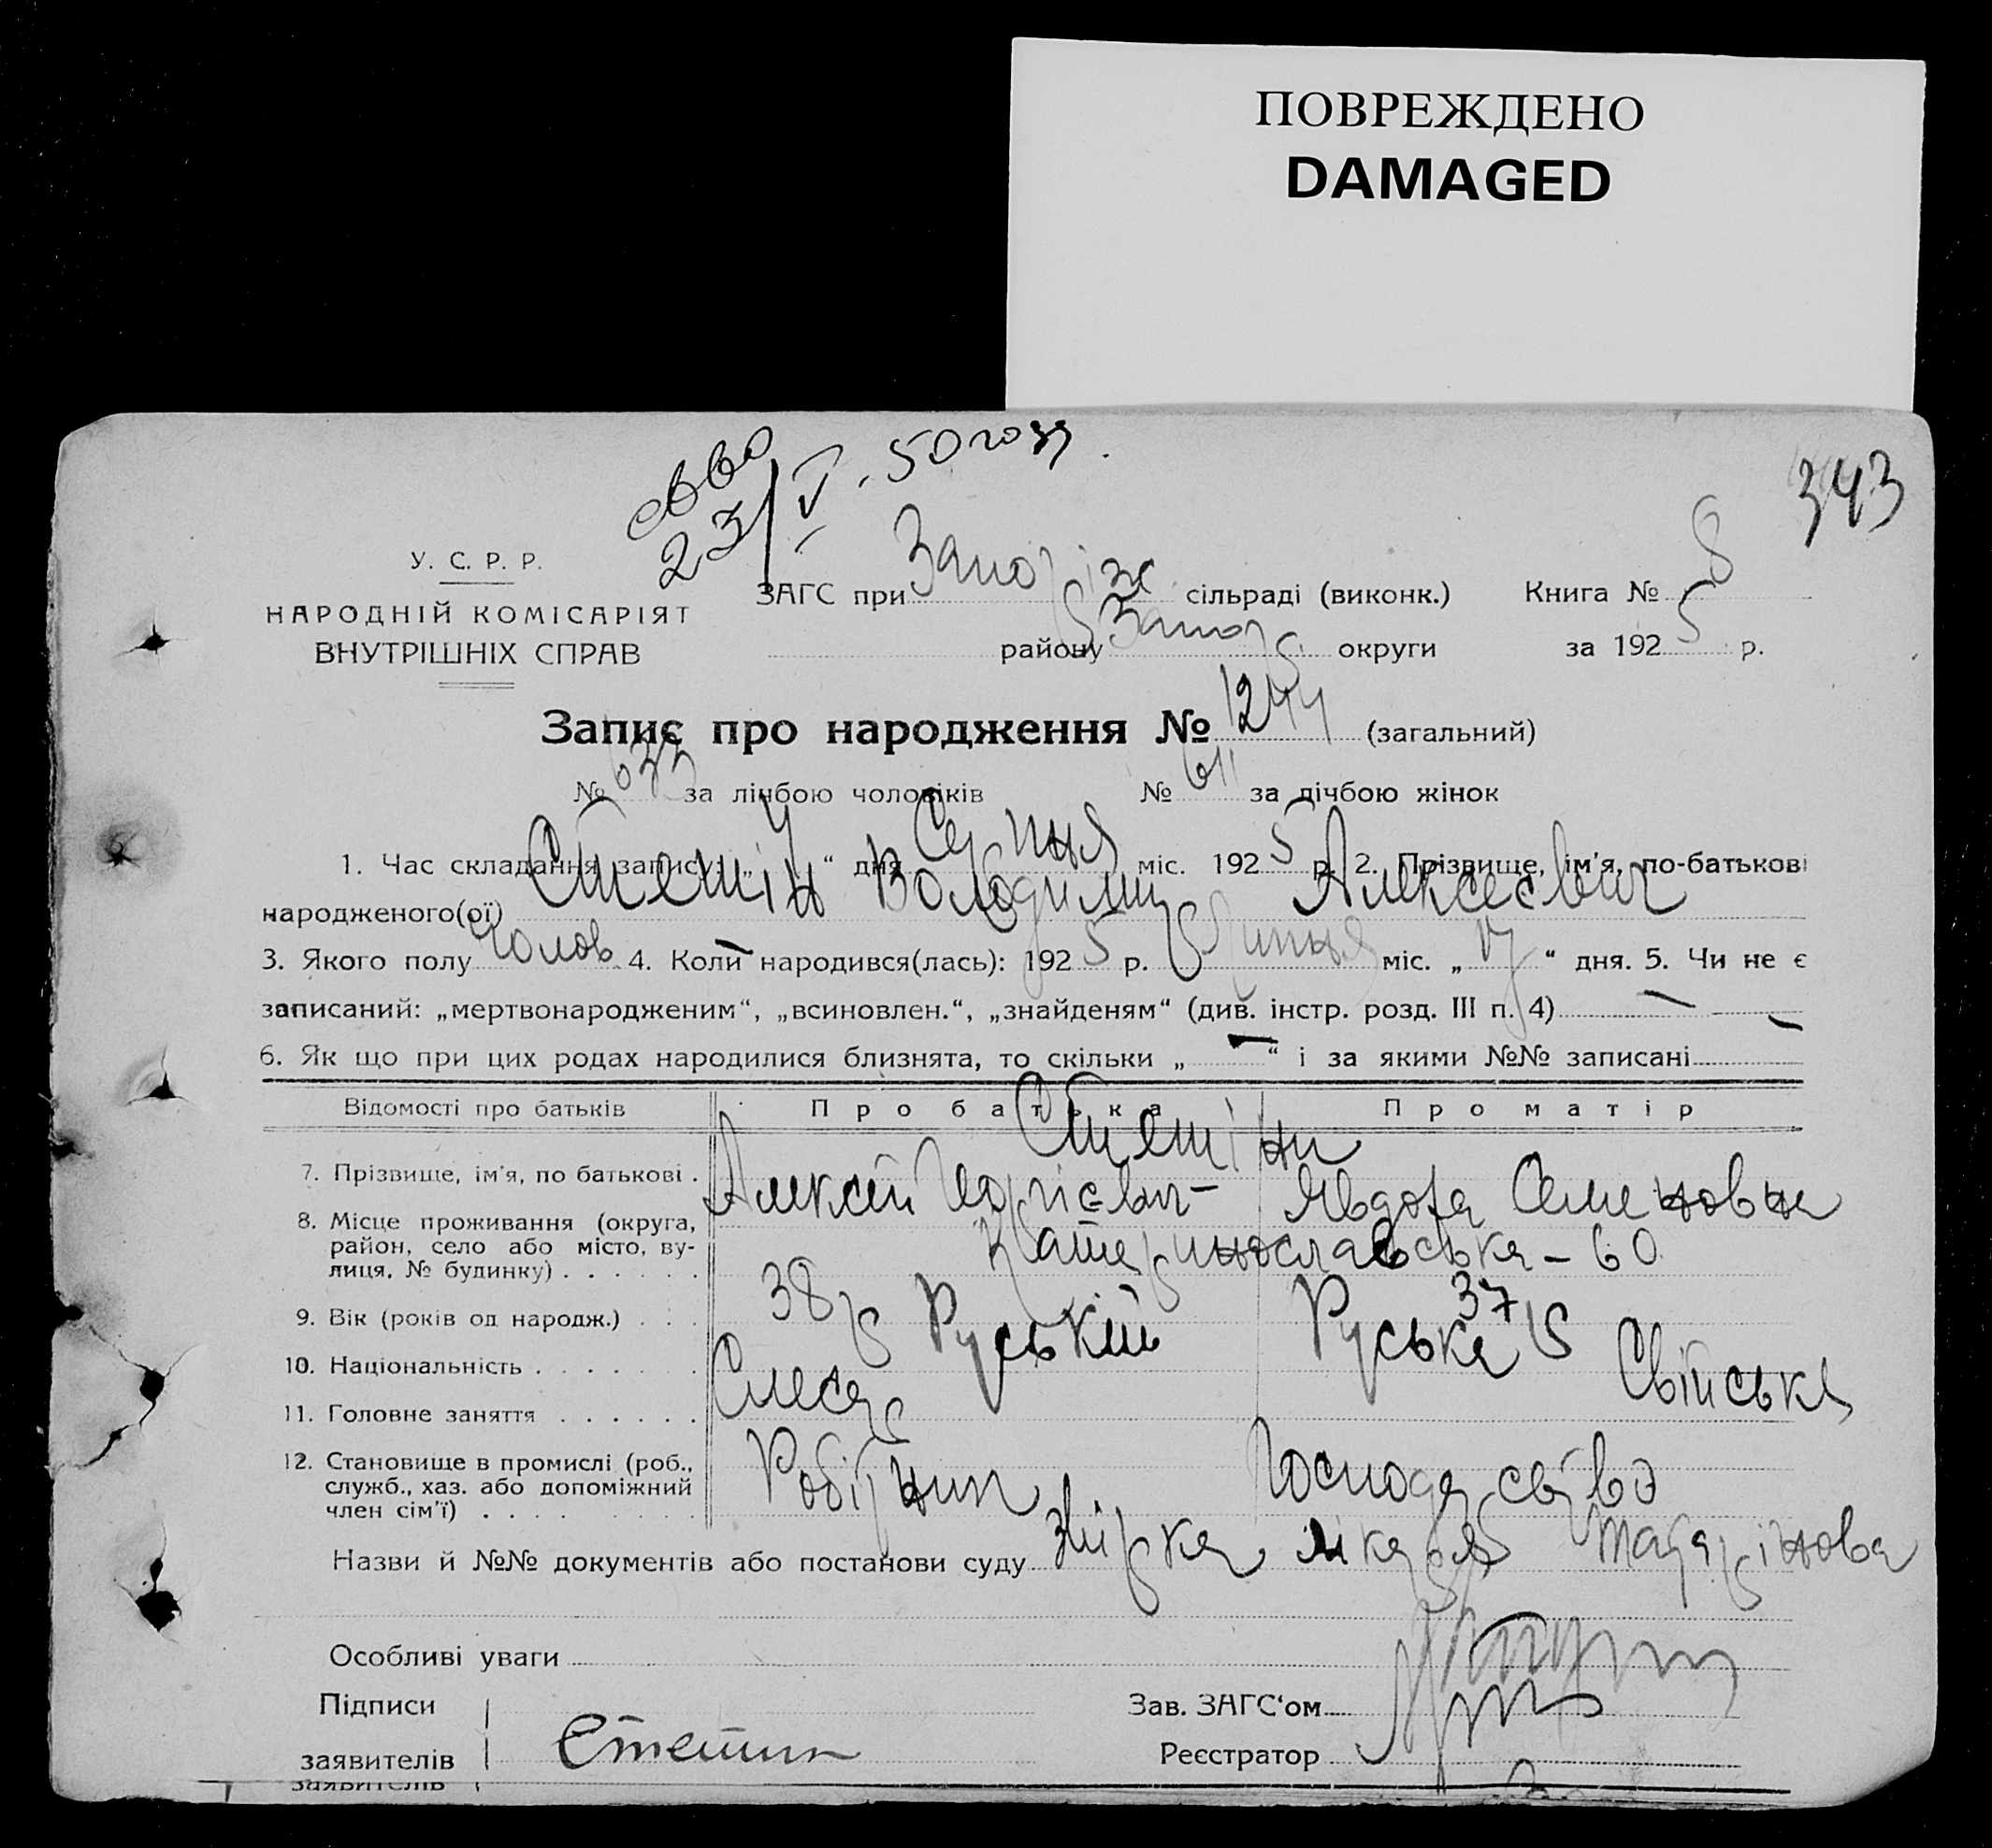 ПОВРЕЖДЕНО
DAMAGED
23/V. 50 году.
343
У. С. Р. Р.
НАРОДНІЙ КОМІСАРІЯТ
ВНУТРІШНІХ СПРАВ
ЗАГС при Запоріж сільраді (виконк.) Книга № 8
району Запор округи за 1925 р.
Запис про народження № 1244 (загальний)
№ 633 за лічбою чоловіків № 611 за лічбою жінок
1. Час складання запису: „ 4 “ дня Серпня міс. 1925 р. 2. Прізвище, ім'я, по-батькові
народженого(ої) Стешін Володимир Алексеєвич
3. Якого полу чолов. 4. Коли народився(лась): 1925 р. Липня міс. „ 17 “ дня. 5. Чи не є
записаний: „мертвонародженим“, „всиновлен.“, „знайденям“ (див. інстр. розд. III п. 4) —
6. Як що при цих родах народилися близнята, то скільки „ — “ і за якими №№ записані —
Відомості про батьків Про батька Про матір
Стешіни
7. Прізвище, ім'я, по батькові . Алексей Юоргієвич Явдоха Семеновна
8. Місце проживання (округа, район, село або місто, вулиця, № будинку) . . . . . . Катеринославська – 60
9. Вік (років од народж.) . . . 38 р 37 р
10. Національність . . . . . . . Руський Руська
11. Головне заняття . . . . . . Слесар Свійська
12. Становище в промислі (роб., служб., хаз. або допоміжний член сім'ї) . . . . Робітник Господарство
Назви й №№ документів або постанови суду лікаря
Особливі уваги
Підписи Зав. ЗАГС'ом
заявителів Стешин Реєстратор
заявителів